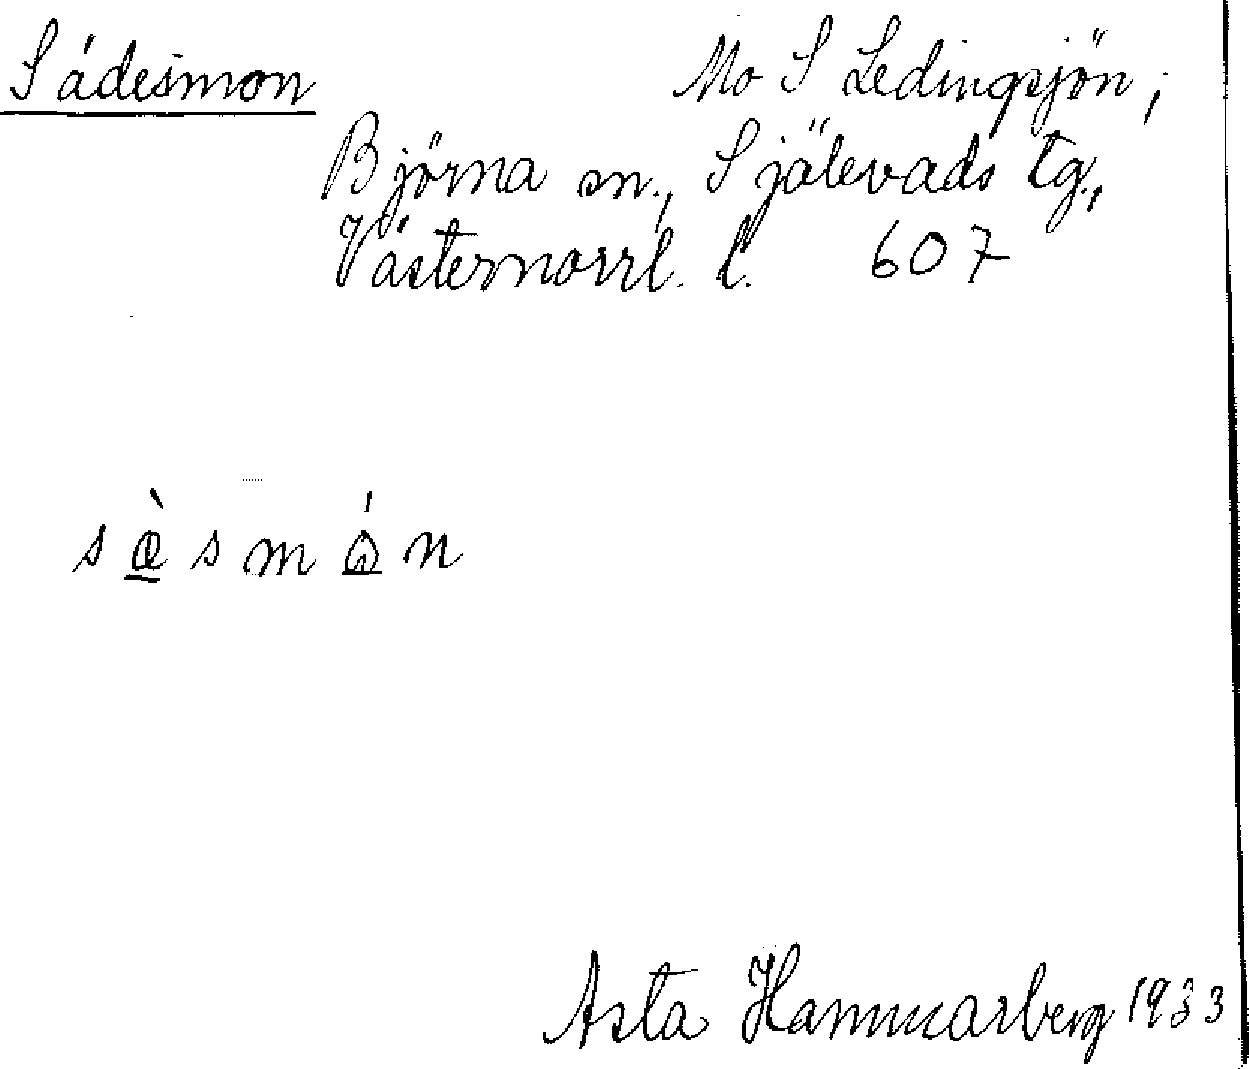 Sädesmon Mo S Ledingsjön;
Björna sn., Själevads tg.,
Västernorrl. l. 607
sæ̀smón
Asta Hammarberg 1933